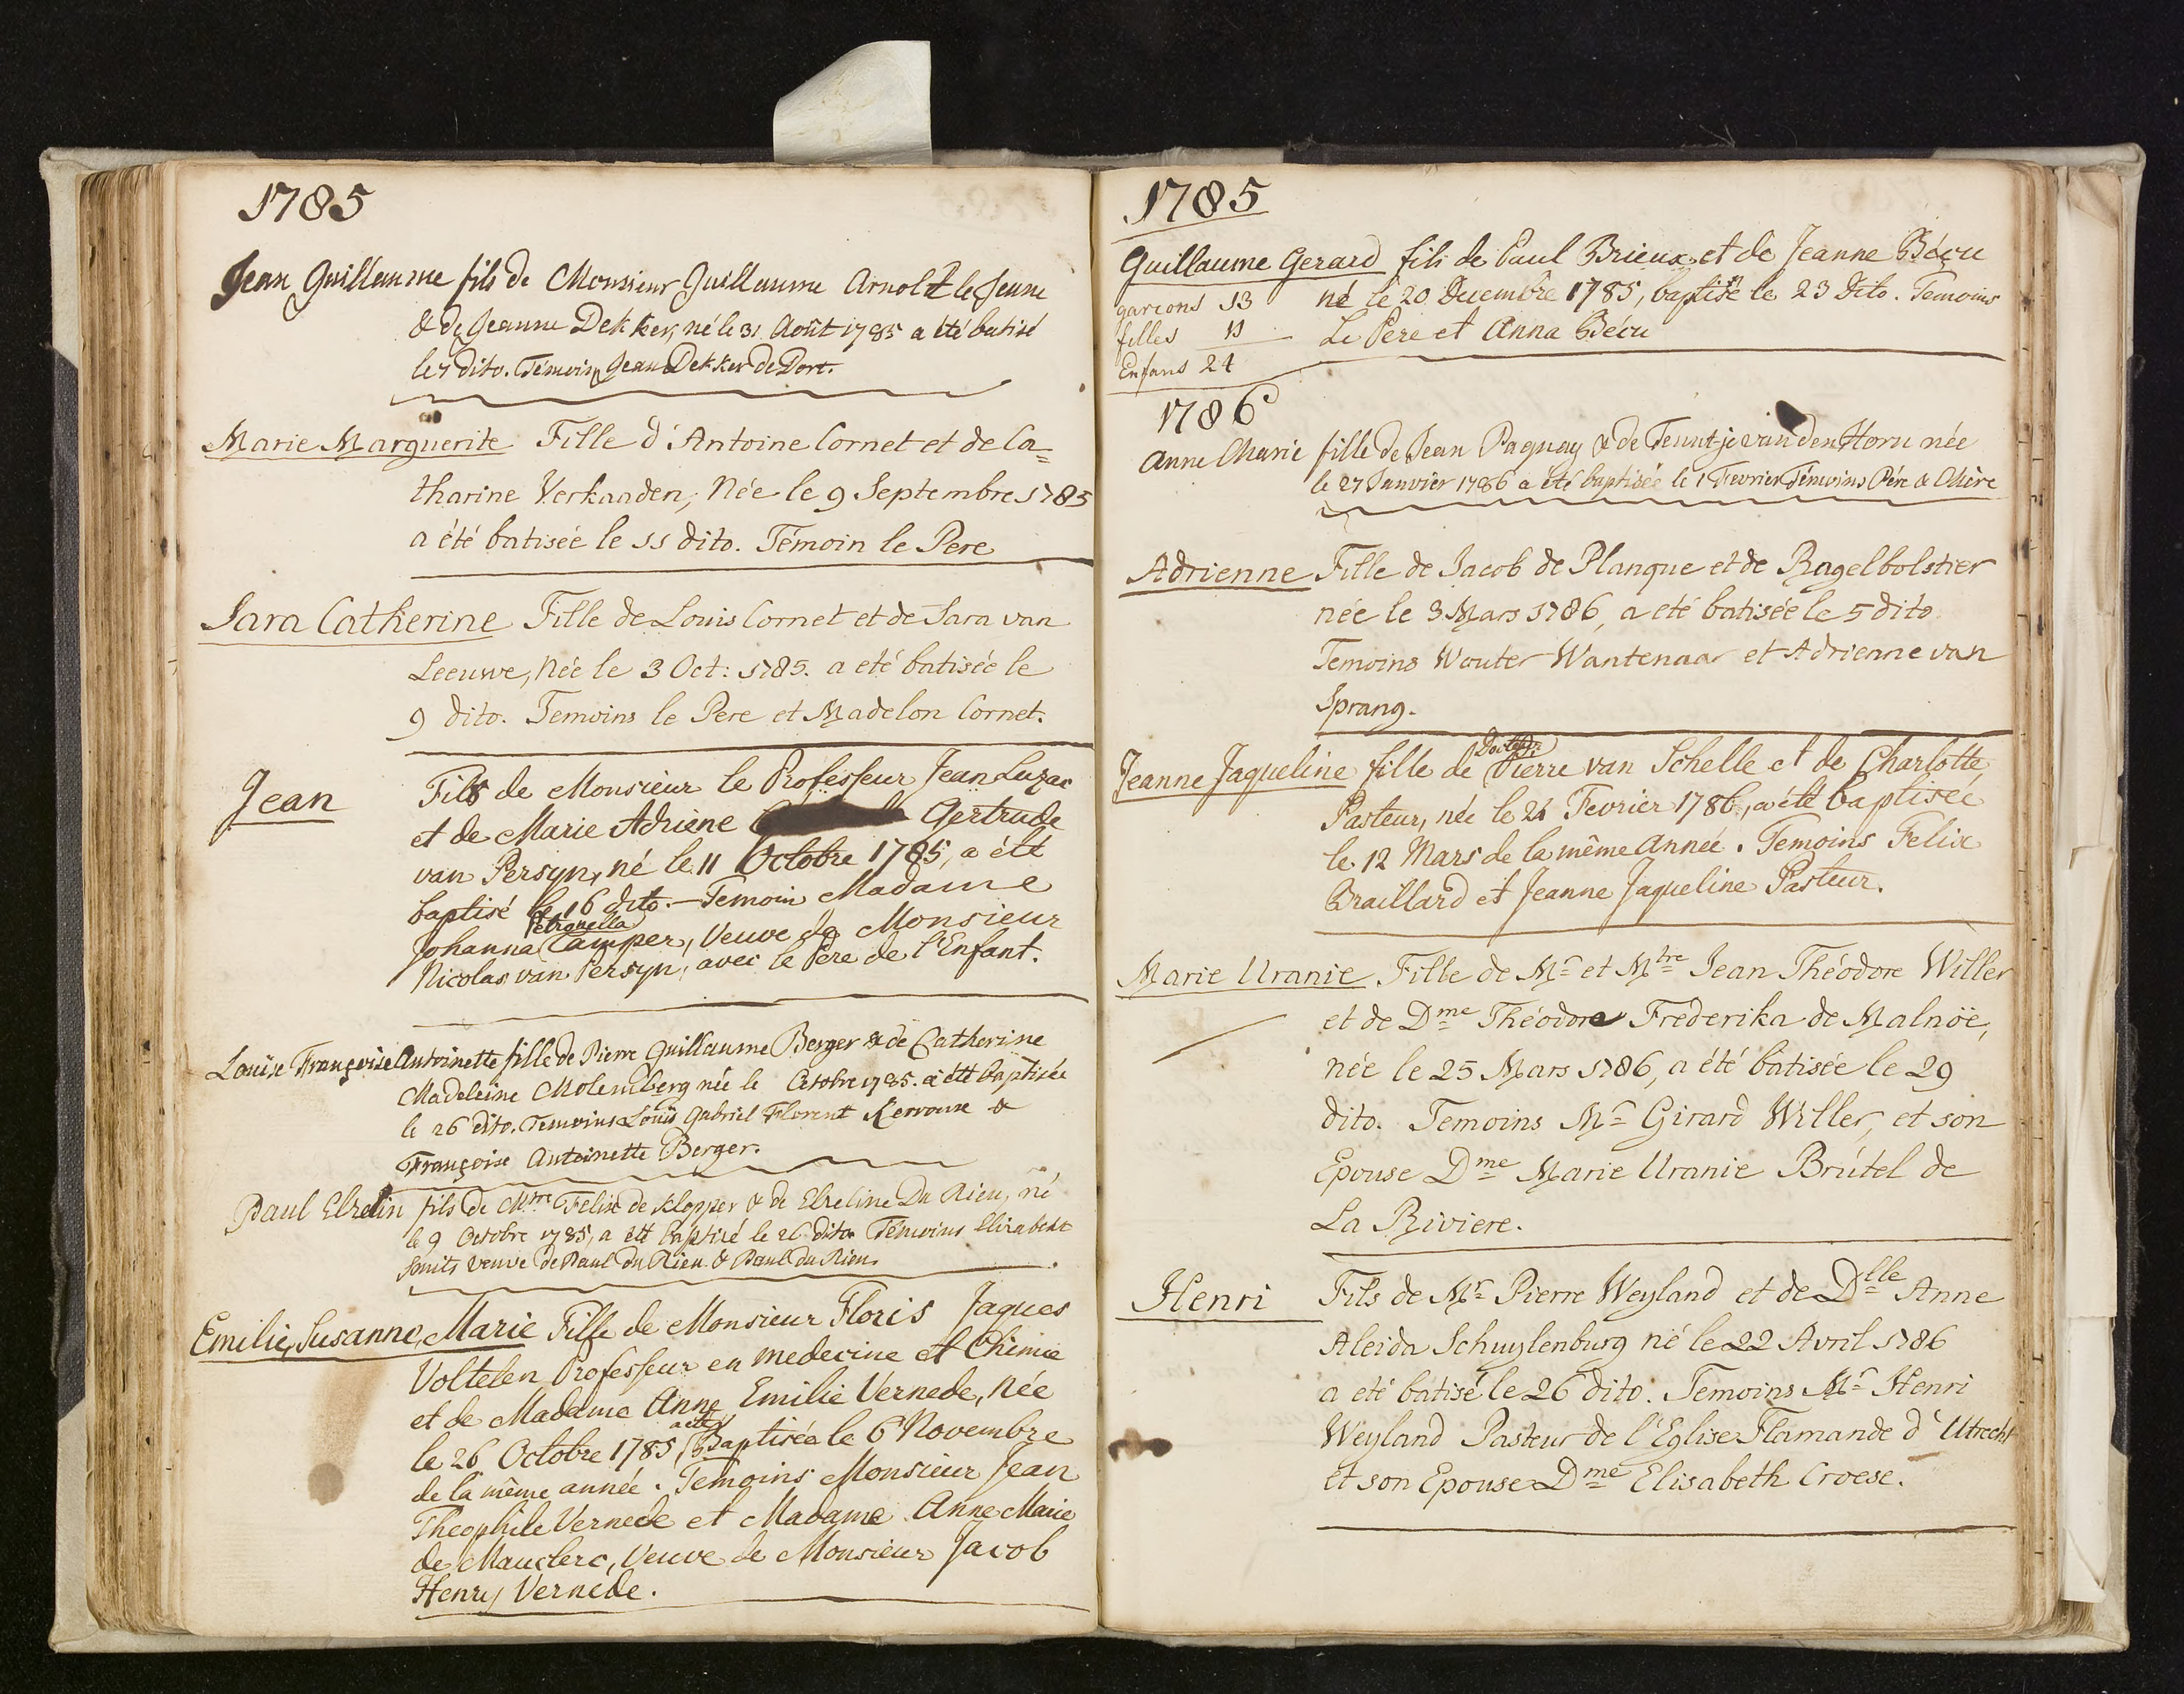 1785
Jean Guillaume fils de Monsieur Guillaume Arnold le Jeune
& de Jeanne Dekker, né le 31 Août 1785 a été batisé
le 7 dito. Témoin Jean Dekker de Dort.
Marie Marguerite Fille d'Antoine Cornet et de Ca=
tharine Verkaaden, Née le 9 Septembre 1785
a été batisée le 11 dito. Témoin le Pere
Sara Catherine Fille de Louis Cornet et de Sara van
Leeuwe, Née le 3 Oct: 1785. a eté batisée le
9 dito. Temoins le Pere et Madelon Cornet.
Jean Fils de Monsieur le Professeur Jean Luzac
et de Marie Adriene Gertrude
van Persyn, né le 11 Octobre 1785, a été
baptisé le 16 dito. — Temoin Madame
Johanna Petronella Camper, Veuve de Monsieur
Nicolas van Persyn, avec le Père de l'Enfant.
Louise Françoise Antoinette fille de Pierre Guillaume Berger & de Catherine
Madeleine Molenberg née le Octobre 1785. a été baptisée
le 26 dito. Temoins Louis Gabriel Florent &
Françoise Antoinette Berger.
Paul Elzelin fils de Mtre Felix de Klopper & de Elzeline Du Rieu, né
le 9 Octobre 1785, a été baptisé le 26 dito. Témoins Elizabeht
Smits veuve de Paul du Rieu & Paul du Rieu.
Emilie, Susanne, Marie Fille de Monsieur Floris Jaques
Voltelen Professeur en medecine et Chimie
et de Madame Anne Emilie Vernede, née
le 26 Octobre 1785, a été Baptisée le 6 Novembre
de la même année. Temoins Monsieur Jean
Theophile Vernede et Madame Anne Marie
de Mauclerc, Veuve de Monsieur Jacob
Henry Vernede.
1785
Guillaume Gerard fils de Paul Brieux et de Jeanne Bécu
garcons 13 né le 20 Decembre 1785, baptisé le 23 dito. Temoins
filles 11 Le Pere et Anna Bécu
Enfans 24
1786
Anne Marie fille de Jean Paquay & de Teuntje van den Horn née
le 27 Janvier 1786 a été baptisée le 1 Fevrier Témoins Pére & Mère
Adrienne Fille de Jacob de Planque et de Ragelbolstier
née le 3 Mars 1786, a eté batisée le 5 dito
Temoins Wouter Wantenaar et Adrienne van
Sprang.
Jeanne Jaqueline fille de Docteur Pierre van Schelle et de Charlotte
Pasteur, née le 21 Fevrier 1786, a été baptisée
le 12 Mars de la même Année. Temoins Felix
Braillard et Jeanne Jaqueline Pasteur.
Marie Uranie Fille de Mr et Mtre Jean Théodore Willer
et de Dme Théodore Fréderika de Malnöe,
née le 25 Mars 1786, a été batisée le 29
dito. Temoins Mr Girard Willer, et son
Epouse Dme Marie Uranie Brútel de
La Riviere.
Henri Fils de Mr Pierre Weyland et de Dlle Anne
Aleida Schuylenburg né le 22 Avril 1786
a eté batisé le 26 dito. Temoins Mr Henri
Weyland Pasteur de l'Eglise Flamande d'Utrecht
et son Epouse Dme Elisabeth Croese.